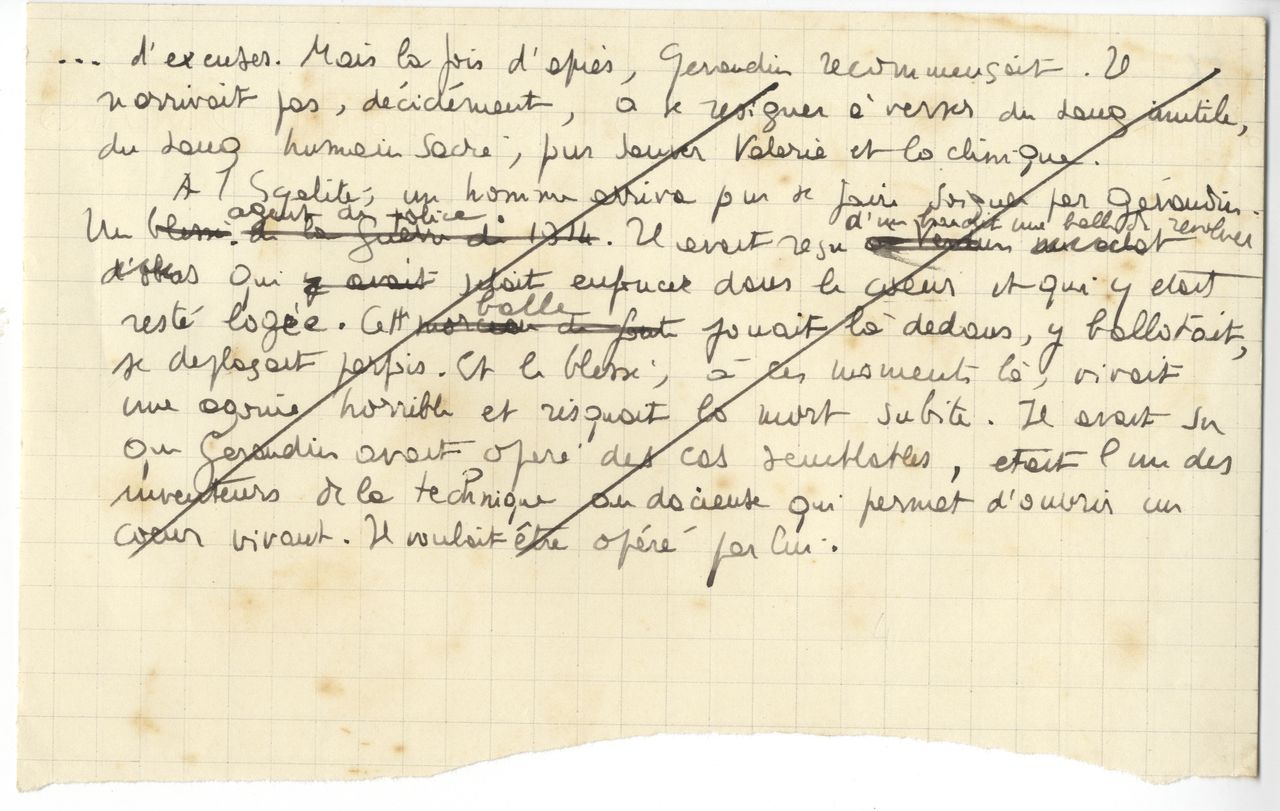 ... d'excuses. Mais la fois d'après, Geraudin recommençait. Il
n'arrivait pas, décidément, à se resigner à verser du sang inutile,
du sang humain sacré, pour sauver Valerie et la clinique.
A l'Egalité, un homme arriva pour se faire soigner par Géraudin.
agent de police. d'un bandit une balle de revolver
Un blessé de la guerre de 1914. Il avait reçu à Verdun un eclat
d'obus qui y avait s'etait enfoncee dans le coeur et qui y etait
balle
resté logée. Cette morceau de fonte jouait là dedans, y ballotait,
se deplaçait parfois. Et le blessé, à ces moments là, vivait
une agonie horrible et risquait la mort subite. Il avait su
que Geraudin avait operé des cas semblables, etait l'un des
inventeurs de la technique audacieuse qui permet d'ouvrir un
coeur vivant. Il voulait être opéré par lui.